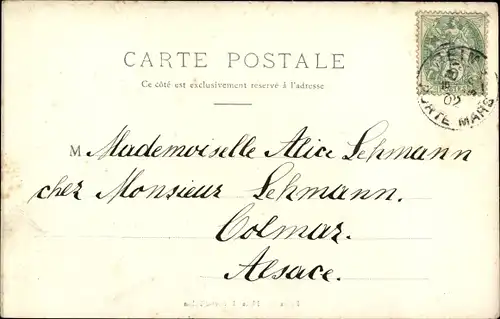 CARTE POSTALE
Ce côté est exclusivement reservé à l'adresse
M Mademoiselle Alice Lehmann
chez Monsieur Lehmann.
Colmar.
Alsace.
02
PORTE MARS